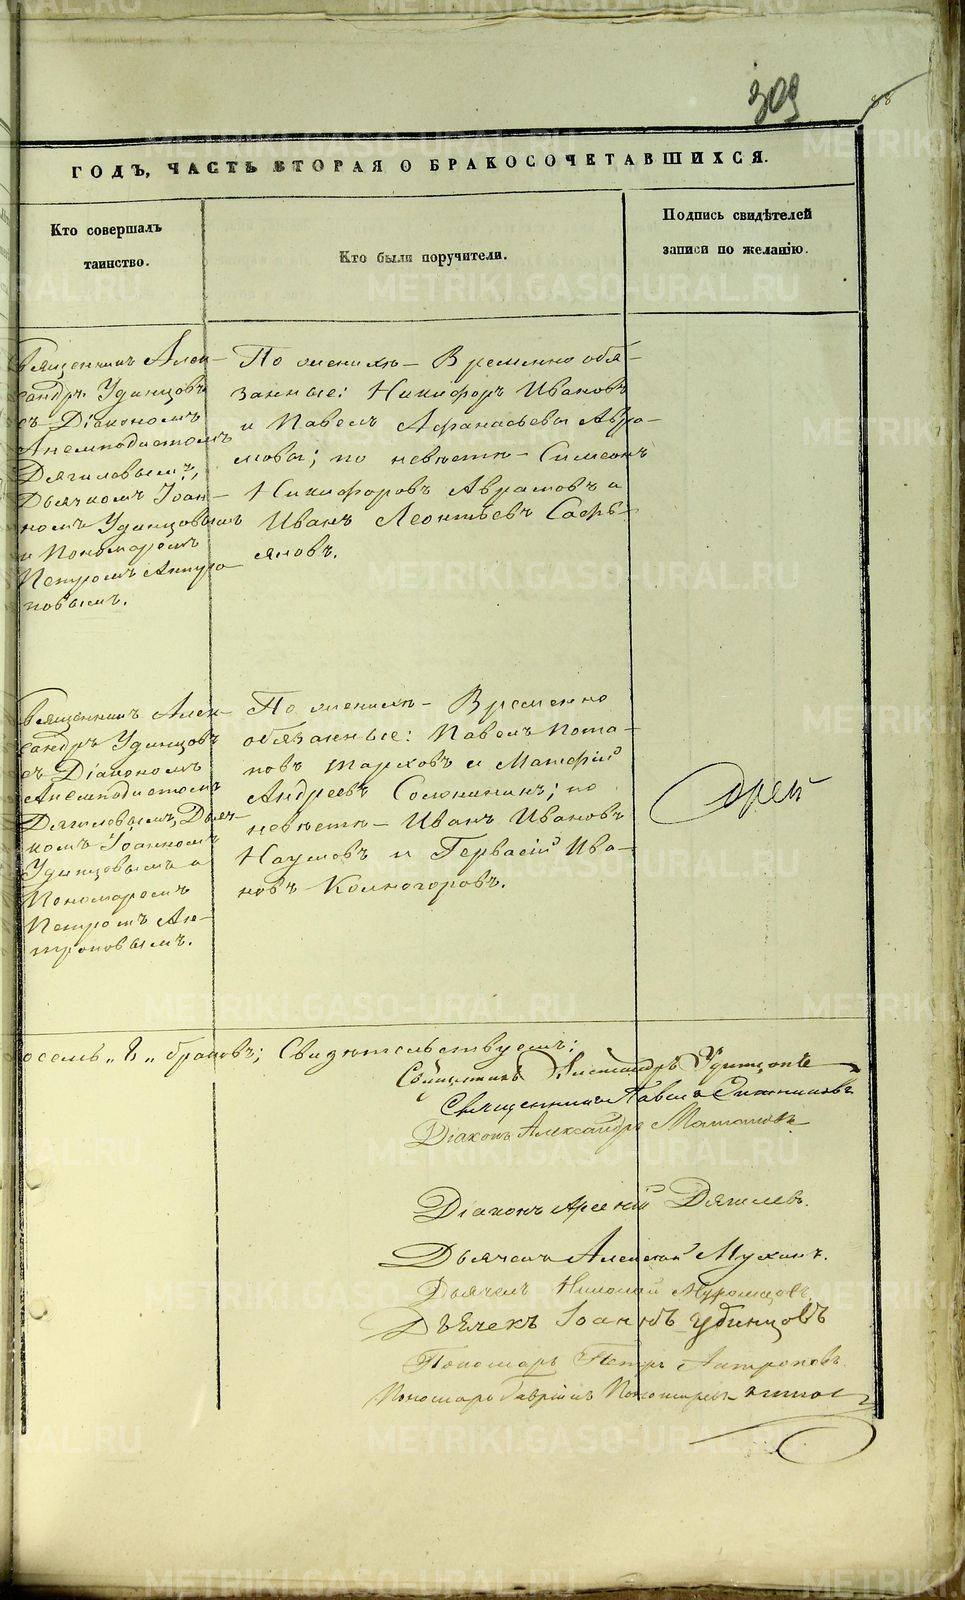 309
88
ГОДЪ, ЧАСТЬ ВТОРАЯ О БРАКОСОЧЕТАВШИХСЯ.
Кто совершалъ
таинство.
Кто были поручители.
Подпись свидѣтелей
записи по желанію.
Священникъ Алек-
сандръ Удинцовъ
съ Діакономъ
Анемподистомъ
Дягилевымъ,
Дьячкомъ Іоан-
номъ Удинцовымъ
и Пономаремъ
Петромъ Антро-
повымъ.
По женихѣ – Временно обя-
занные: Никифоръ Ивановъ
и Павелъ Афанасьевы Авра-
мовы; по невѣстѣ – Симеонъ
Никифоровъ Аврамовъ и
Иванъ Леонтьевъ Сафь-
яловъ.
Священникъ Алек-
сандръ Удинцовъ
съ Діакономъ
Анемподистомъ
Дягилевымъ, Дьяч-
комъ Іоанномъ
Удинцовымъ и
Пономаремъ
Петромъ Ан-
троповымъ.
По женихѣ – Временно
обязанные: Павелъ Пота-
повъ Тарховъ и Матфій
Андреевъ Солонининъ; по
невѣстѣ – Иванъ Ивановъ
Наумовъ и Гервасій Ива-
новъ Колногоровъ.
восемь „8„ браковъ; Свидѣтельствуемъ:
Священникъ Александръ Удинцовъ
Священникъ Павелъ
Діаконъ Александръ
Діаконъ Арсеній Дягилевъ.
Дьячекъ Алексей Мухинъ.
Дьячекъ Николай Муромцовъ
Дьячекъ Іоаннъ Удинцовъ
Пономарь Петръ Антроповъ
Пономарь Гавріилъ Пономаревъ
METRIKI.GASO-URAL.RU